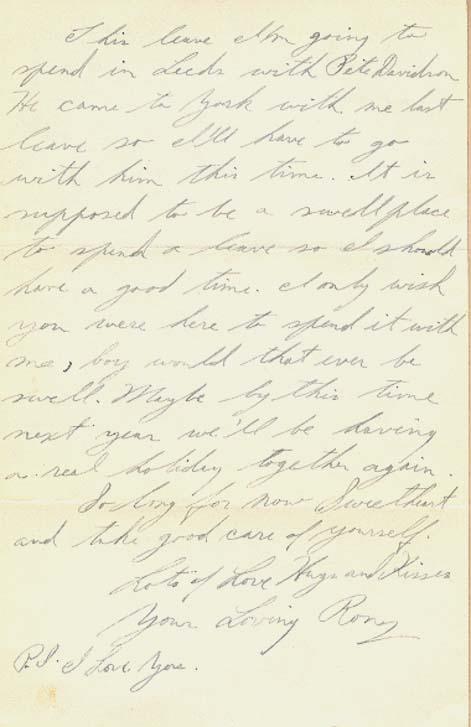 This leave I'm going to
spend in Leeds with Pete Davidson
He came to York with me last
leave so I'll have to go
with him this time. It is
supposed to be a swell place
to spend a leave so I should
have a good time. I only wish
you were here to spend it with
me, boy would that ever be
swell. Maybe by this time
next year we'll be having
a real holiday together again.
So long for now Sweetheart
and take good care of yourself.
Lots of Love Hugs and Kisses
Your Loving
P.S. I Love You.